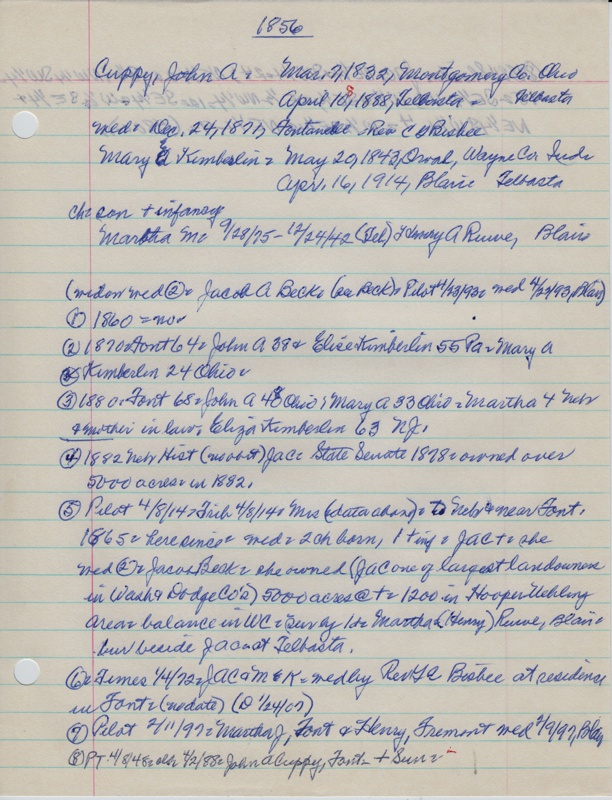 1856
Cuppy, John A = Mar. 7, 1832, Montgomery Co. Ohio
April 18, 1888, Telbasta = Telbasta
med = Dec. 24, 1871, Fontanelle Rev C E Bisbee
Mary E Kimberlin = May 20, 1843, Orval, Wayne Co. Inds
Apr. 16, 1914, Blair Telbasta
ch = son + infancy
Martha M = 9/28/75 - 12/24/42 (Tel) Henry A Ruwe, Blair
(widow wed ② = Jacob A Beck = (see Beck) = Pilot 4/23/93 = wed 4/23/93, Blair)
① 1860 = no =
② 1870 = Font 64 = John A 38 & Eliza Kimberlin 55 Pa = Mary A
Kimberlin 24 Ohio =
③ 1880 = Font 68 = John A 48 Ohio; Mary A 33 Ohio = Martha 4 Nebr
& mother in law = Eliza Kimberlin 63 NJ.
④ 1882 Nebr Hist (no obit) JAC = State Senate 1878 = owned over
5000 acres = in 1882.
⑤ Pilot 4/8/14 = Trib 4/8/14 = Mrs (data above) = to Nebr = near Font.
1865 = here since = wed = 2 ch born, 1 + inf = JAC + = she
wed ② = Jacob Beck = she owned (JAC one of largest landowners
in Wash & Dodge Co's) 5000 acres @ + = 1200 in Hooper Uehling
area = balance in WC = Surv by 1 d = Martha (Henry) Ruwe, Blair =
bur beside JAC at Telbasta.
⑥ Times 1/4/72 = JAC & M E K = wed by Rev C E Bisbee at residence
in Font = (no date) (@ 1/24/07)
⑦ Pilot 2/11/97 = Martha J, Font & Henry, Fremont wed 2/9/97, Blair
⑧ PT 4/8/48 = chr 4/2/88 = John A Cuppy, Font = + Sun =